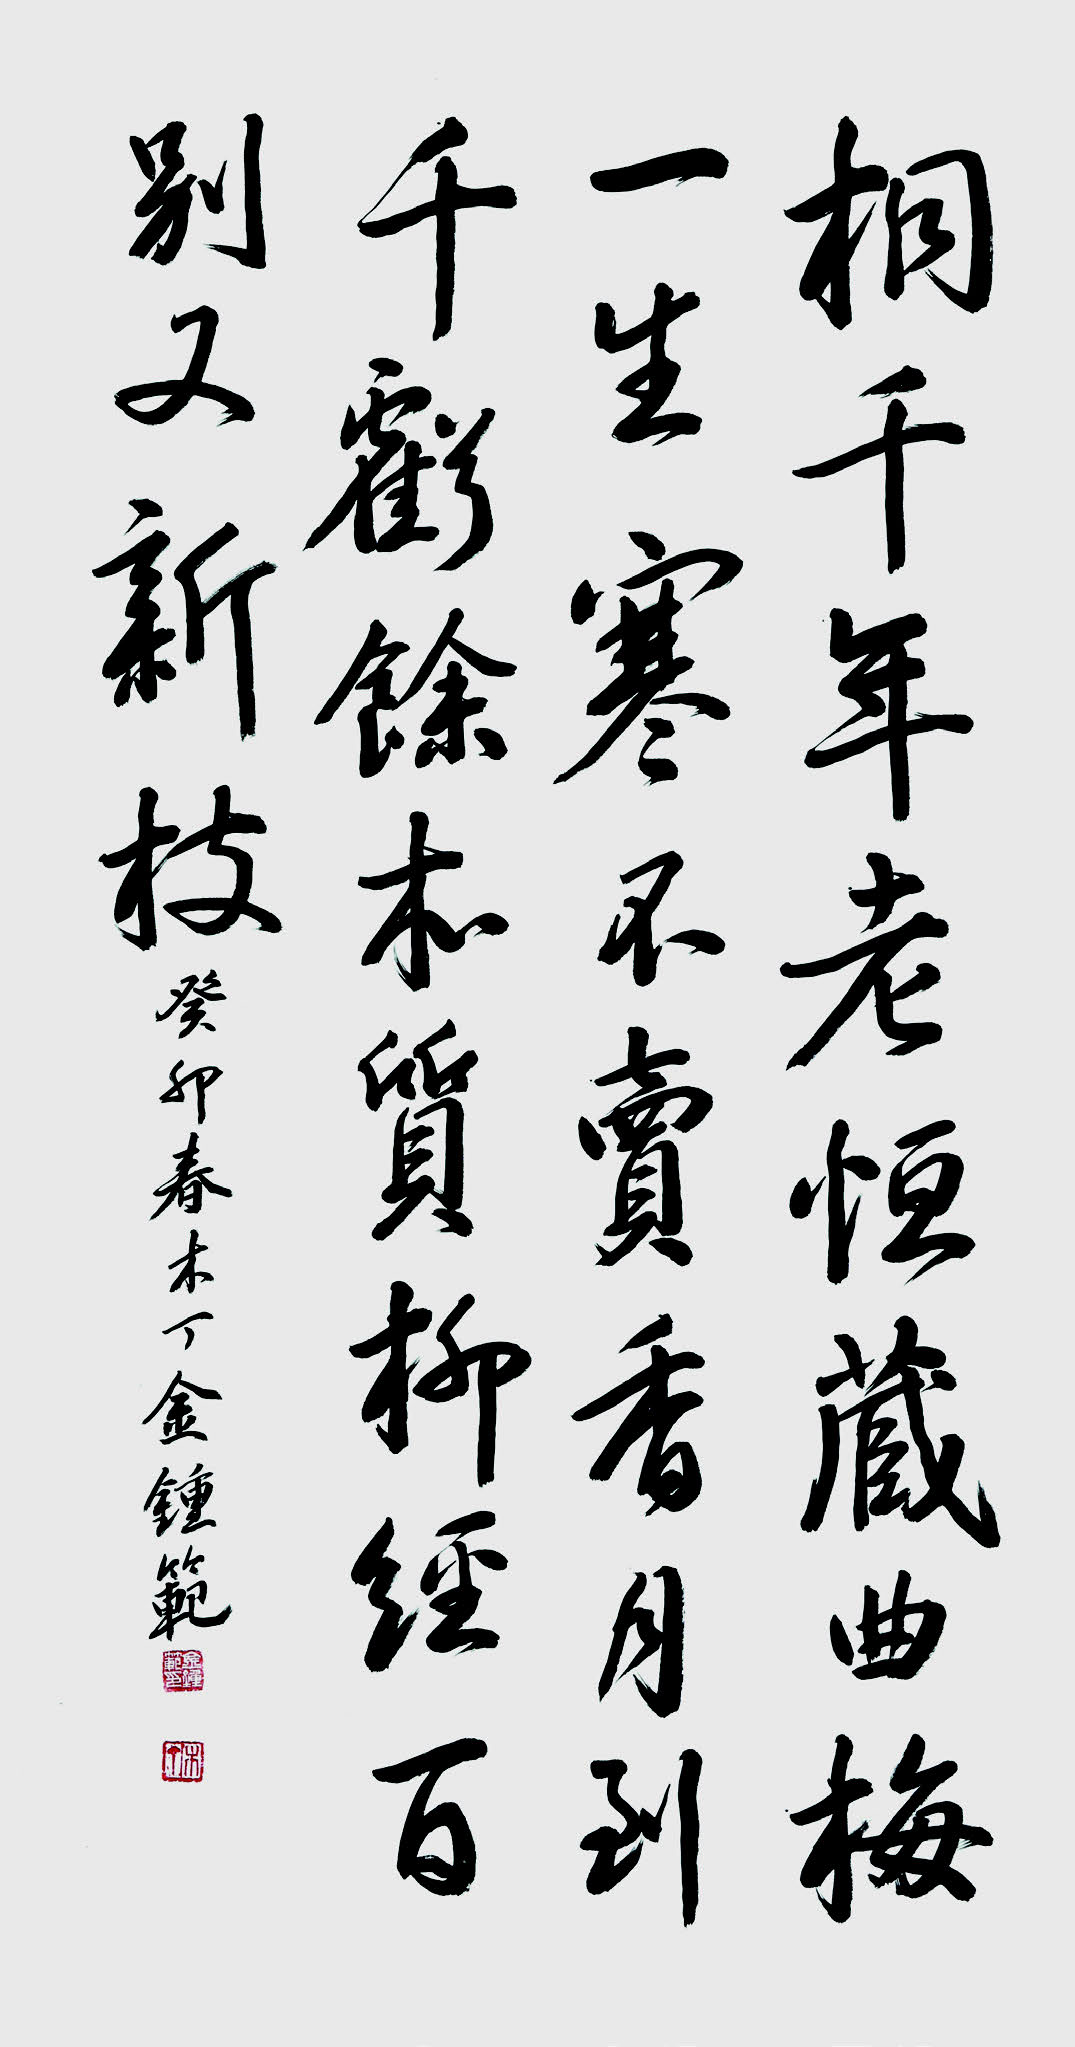 桐千年老恒藏曲梅
一生寒不賣香月到
千虧餘本質柳經百
別又新枝癸卯春木丁金鍾範
金鍾範印
木丁